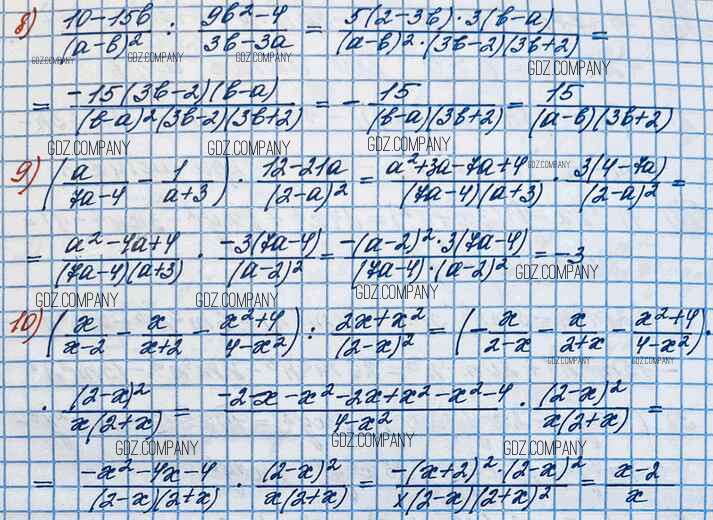 8) (10-15b)/(a-b)² : (9b²-4)/(3b-3a) = (5(2-3b)·3(b-a))/((a-b)²·(3b-2)(3b+2)) =
GDZ.COMPANY GDZ.COMPANY GDZ.COMPANY GDZ.COMPANY
= (-15(3b-2)(b-a))/((b-a)²(3b-2)(3b+2)) = - 15/((b-a)(3b+2)) = 15/((a-b)(3b+2))
GDZ.COMPANY GDZ.COMPANY GDZ.COMPANY
9) (a/(7a-4) - 1/(a+3)) · (12-21a)/(2-a)² = (a²+3a-7a+4)/((7a-4)(a+3)) · (3(4-7a))/(2-a)² =
GDZ.COMPANY
= (a²-4a+4)/((7a-4)(a+3)) · (-3(7a-4))/(a-2)² = (-(a-2)²·3(7a-4))/((7a-4)·(a-2)²) = -3
GDZ.COMPANY
GDZ.COMPANY GDZ.COMPANY GDZ.COMPANY
10) (x/(x-2) - x/(x+2) - (x²+4)/(4-x²)) : (2x+x²)/(2-x)² = (-x/(2-x) - x/(2+x) - (x²+4)/(4-x²)) ·
GDZ.COMPANY GDZ.COMPANY
· (2-x)²/(x(2+x)) = (-2-x-x²-2x+x²-x²-4)/(4-x²) · (2-x)²/(x(2+x)) =
GDZ.COMPANY GDZ.COMPANY GDZ.COMPANY
= (-x²-4x-4)/((2-x)(2+x)) · (2-x)²/(x(2+x)) = (-(x+2)²·(2-x)²)/(x(2-x)(2+x)²) = (x-2)/x